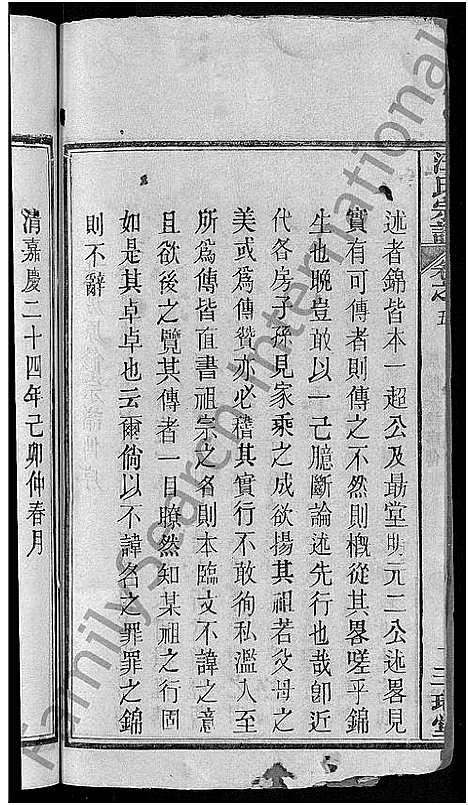 汪氏宗譜
卷之五
述者錦皆本一超公及勗堂明元二公述畧見
實有可傳者則傳之不然則槪從其畧嗟乎錦
生也晚豈敢以一己臆斷論述先行也哉卽近
代各房子孫見家乘之成欲揚其祖若父母之
美或爲傳贊亦必稽其實行不敢徇私濫入至
所爲傳皆直書祖宗之名則本臨文不諱之意
且欲後之覽其傳者一目瞭然知某祖之行固
如是其卓卓也云爾倘以不諱名之罪罪之錦
則不辭
清嘉慶二十四年己卯仲春月
FamilySearch International